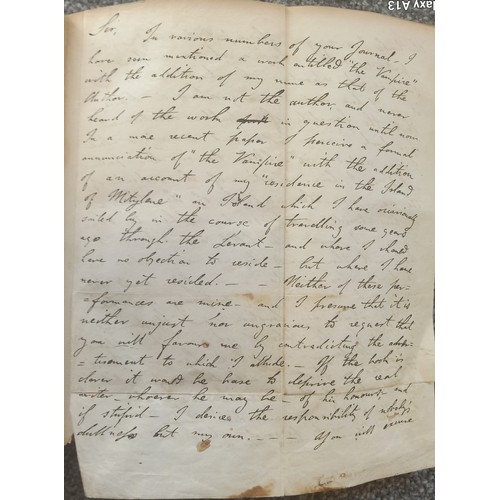 alaxy A13
Sir, In various numbers of your Journal - I
have seen mentioned a work entitled "the Vampire"
with the addition of my name as that of the
Author. - I am not the author and never
heard of the work in question until now
In a more recent paper I perceive a formal
annunciation of "the Vampire" with the addition
of an account of my "residence in the Island
of Mitylane" an Island which I have occasionally
sailed by in the course of travelling some years
ago through the Levant - and where I should
have no objection to reside - but where I have
never yet resided. - - Neither of these per=
=formances are mine - and I presume that it is
neither unjust nor ungracious to request that
you will favour me by contradicting the adver=
=tisement to which I allude. - If the book is
clever it would be base to deprive the real
writer - whoever he may be - of his honours - and
if stupid - I desire the responsibility of nobody's
dullness but my own. - - - - You will excuse